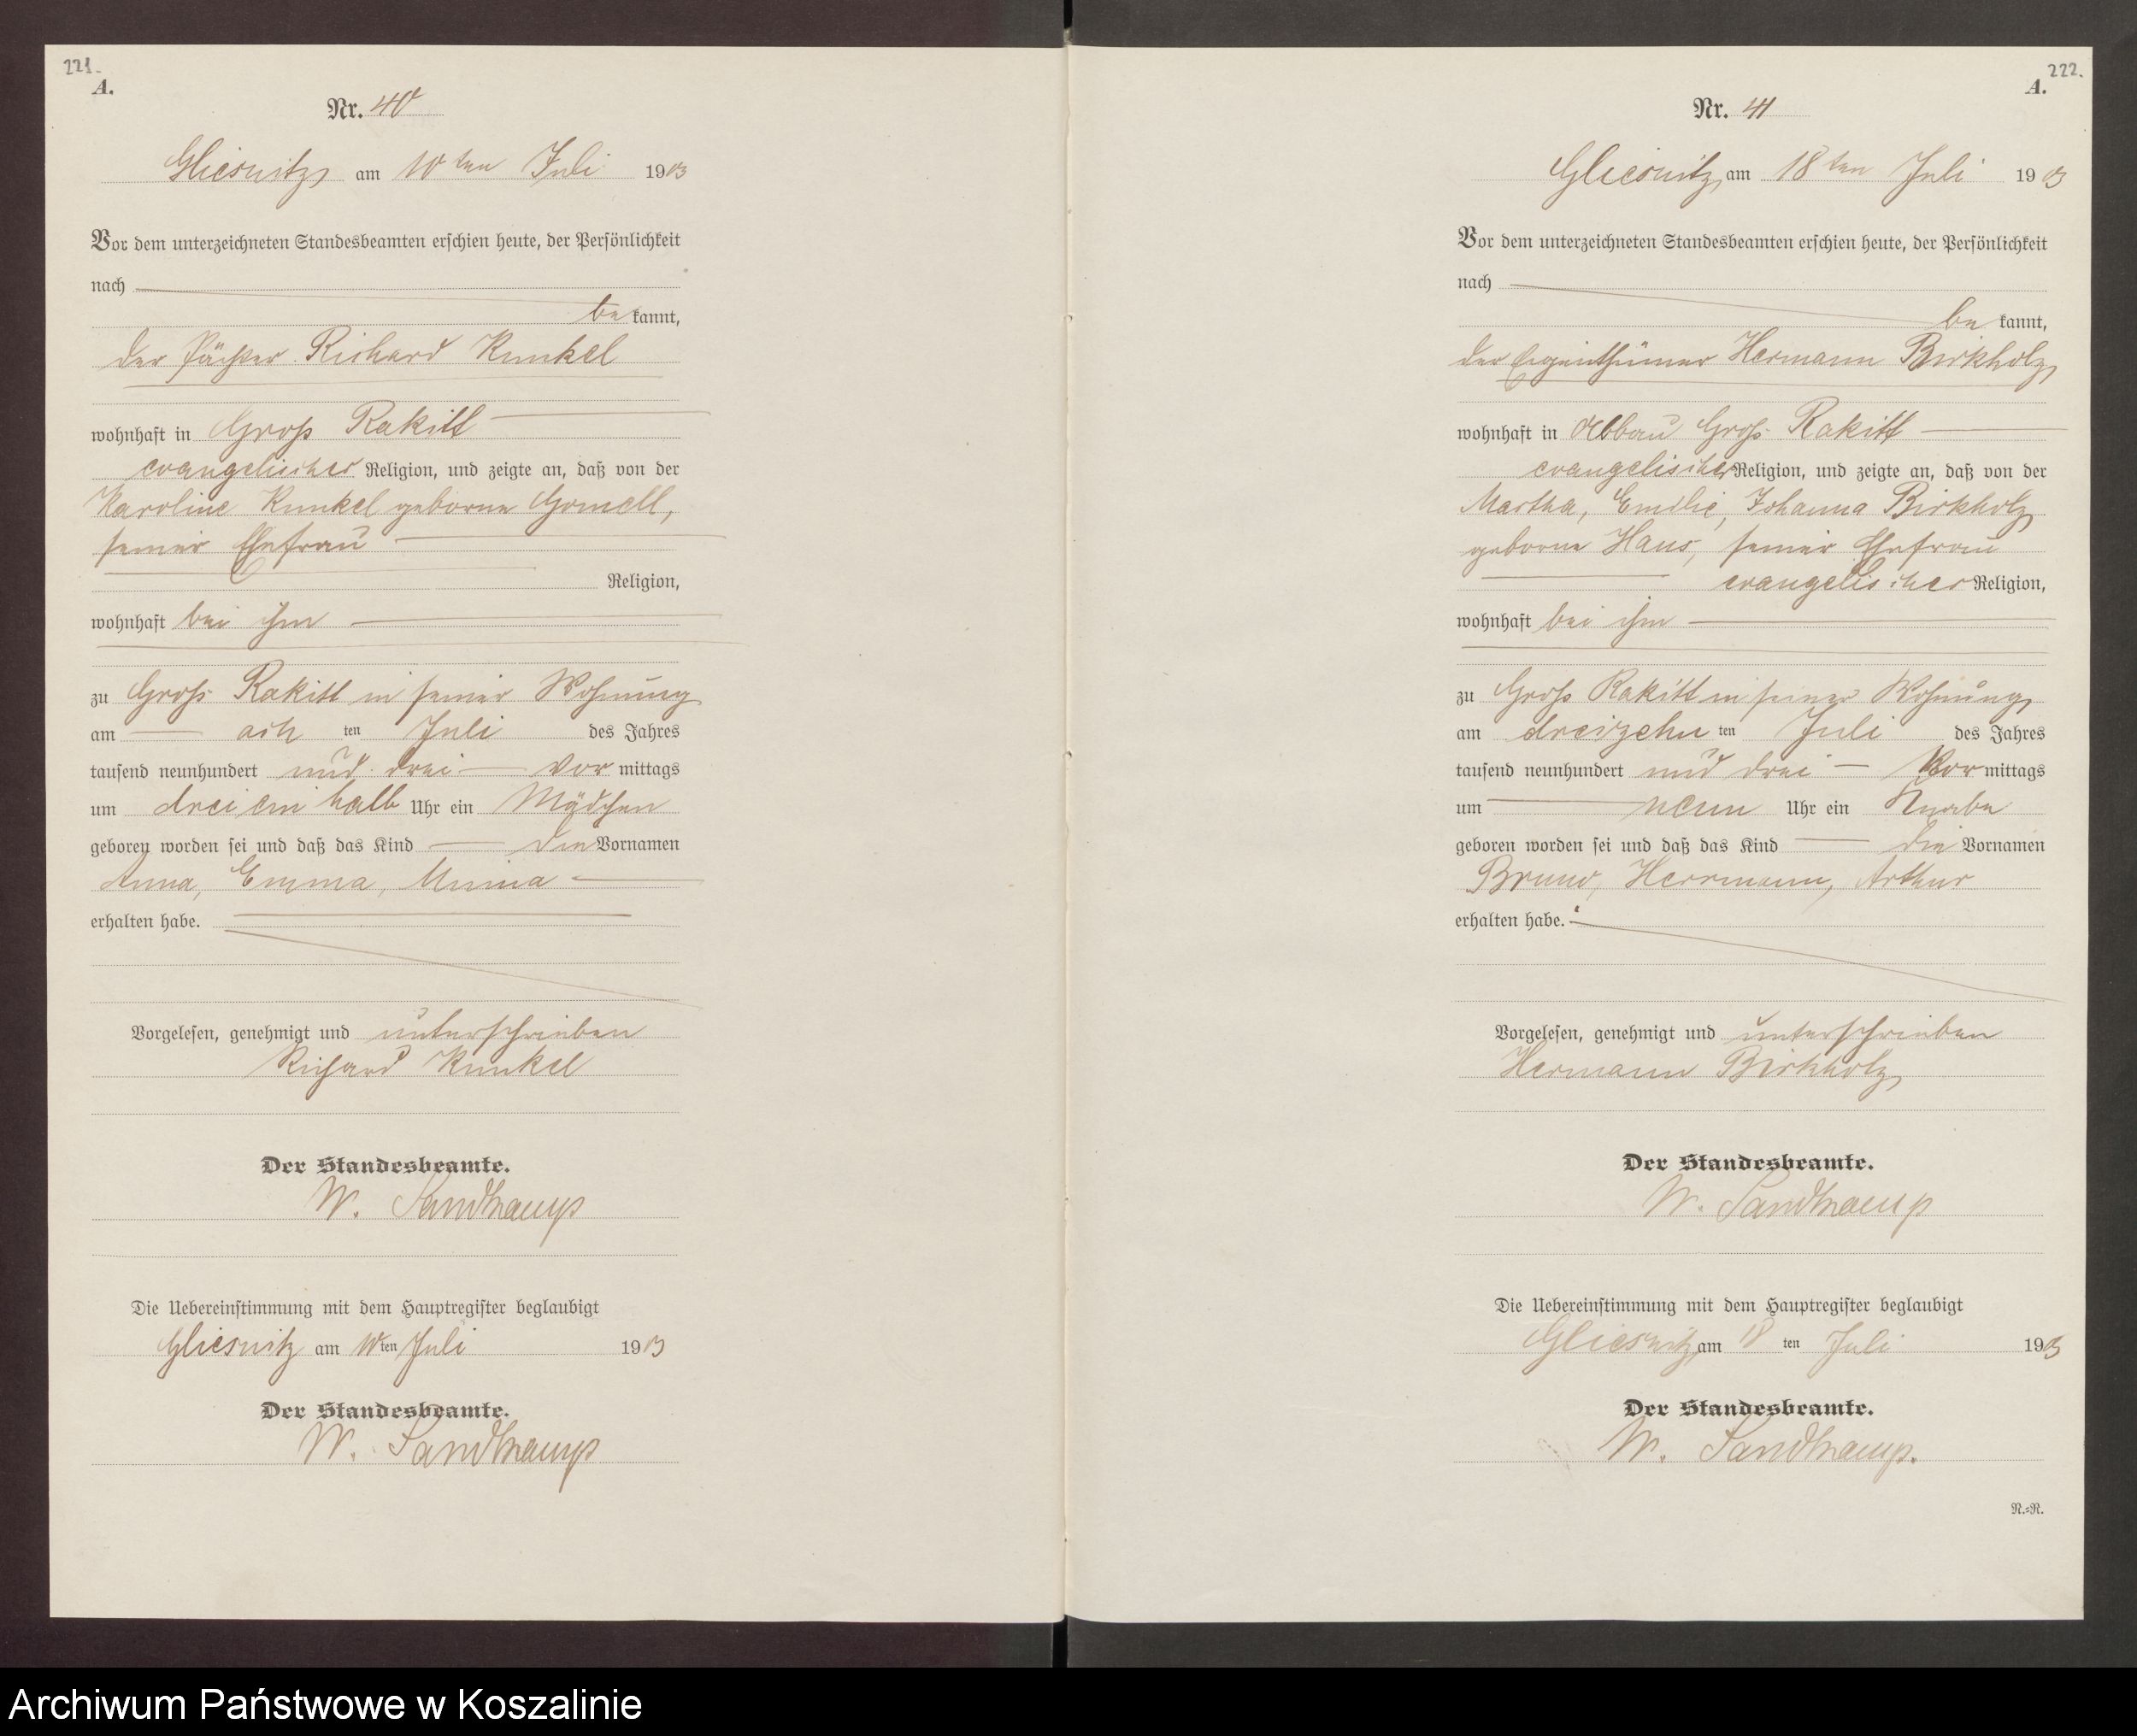 221.
A.
Nr. 40
Gliesnitz am 10ten Juli 1903
Vor dem unterzeichneten Standesbeamten erschien heute, der Persönlichkeit
nach
bekannt,
der Pächter Richard Kunkel
wohnhaft in Groß Rakitt
evangelischer Religion, und zeigte an, daß von der
Karoline Kunkel geborne Gomell,
seiner Ehefrau
Religion,
wohnhaft bei ihm
zu Groß Rakitt in seiner Wohnung
am ach ten Juli des Jahres
tausend neunhundert und drei Vor mittags
um drei ein halb Uhr ein Mädchen
geboren worden sei und daß das Kind die Vornamen
Anna, Emma, Minna
erhalten habe.
Vorgelesen, genehmigt und unterschrieben
Richard Kunkel
Der Standesbeamte.
W. Sandkamp
Die Uebereinstimmung mit dem Hauptregister beglaubigt
Gliesnitz am 10ten Juli 1903
Der Standesbeamte.
W. Sandkamp
222.
A.
Nr. 41
Gliesnitz am 18ten Juli 1903
Vor dem unterzeichneten Standesbeamten erschien heute, der Persönlichkeit
nach
bekannt,
der Eigenthümer Hermann Birkholz
wohnhaft in Abbau Groß Rakitt
evangelischer Religion, und zeigte an, daß von der
Martha, Emilie, Johanna Birkholz
geborne Haus, seiner Ehefrau
evangelischer Religion,
wohnhaft bei ihm
zu Groß Rakitt in seiner Wohnung
am dreizehn ten Juli des Jahres
tausend neunhundert und drei Vor mittags
um neun Uhr ein Knabe
geboren worden sei und daß das Kind die Vornamen
Bruno, Herrmann, Arthur
erhalten habe.
Vorgelesen, genehmigt und unterschrieben
Hermann Birkholz
Der Standesbeamte.
W. Sandkamp
Die Uebereinstimmung mit dem Hauptregister beglaubigt
Gliesnitz am 18 ten Juli 1903
Der Standesbeamte.
W. Sandkamp.
N.=R.
Archiwum Państwowe w Koszalinie